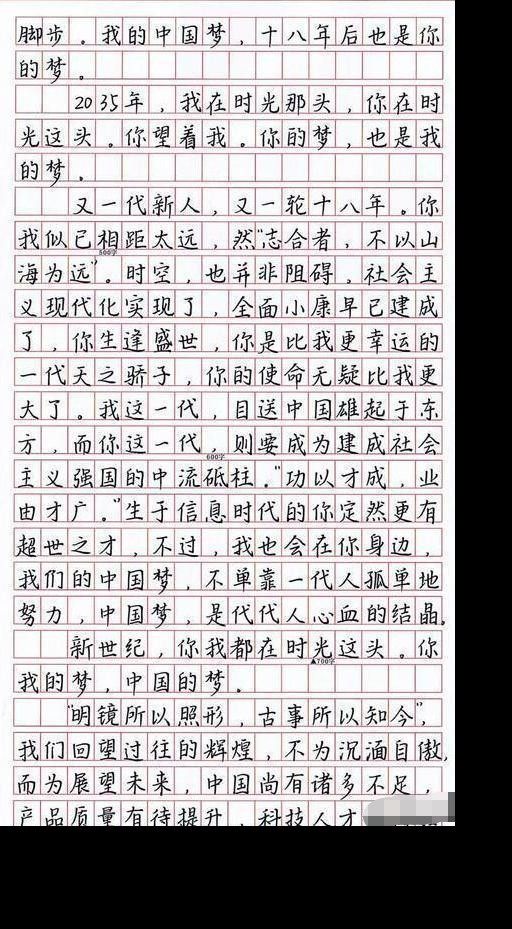 脚步。我的中国梦，十八年后也是你
的梦。
2035年，我在时光那头，你在时
光这头。你望着我。你的梦，也是我
的梦。
又一代新人，又一轮十八年。你
我似已相距太远，然“志合者，不以山
500字
海为远”。时空，也并非阻碍。社会主
义现代化实现了，全面小康早已建成
了，你生逢盛世，你是比我更幸运的
一代天之骄子，你的使命无疑比我更
大了。我这一代，目送中国雄起于东
方，而你这一代，则要成为建成社会
600字
主义强国的中流砥柱。“功以才成，业
由才广。”生于信息时代的你定然更有
超世之才，不过，我也会在你身边，
我们的中国梦，不单靠一代人孤单地
努力，中国梦，是代代人心血的结晶。
新世纪，你我都在时光这头。你
▲700字
我的梦，中国的梦。
“明镜所以照形，古事所以知今”，
我们回望过往的辉煌，不为沉湎自傲，
而为展望未来，中国尚有诸多不足，
产品质量有待提升，科技人才